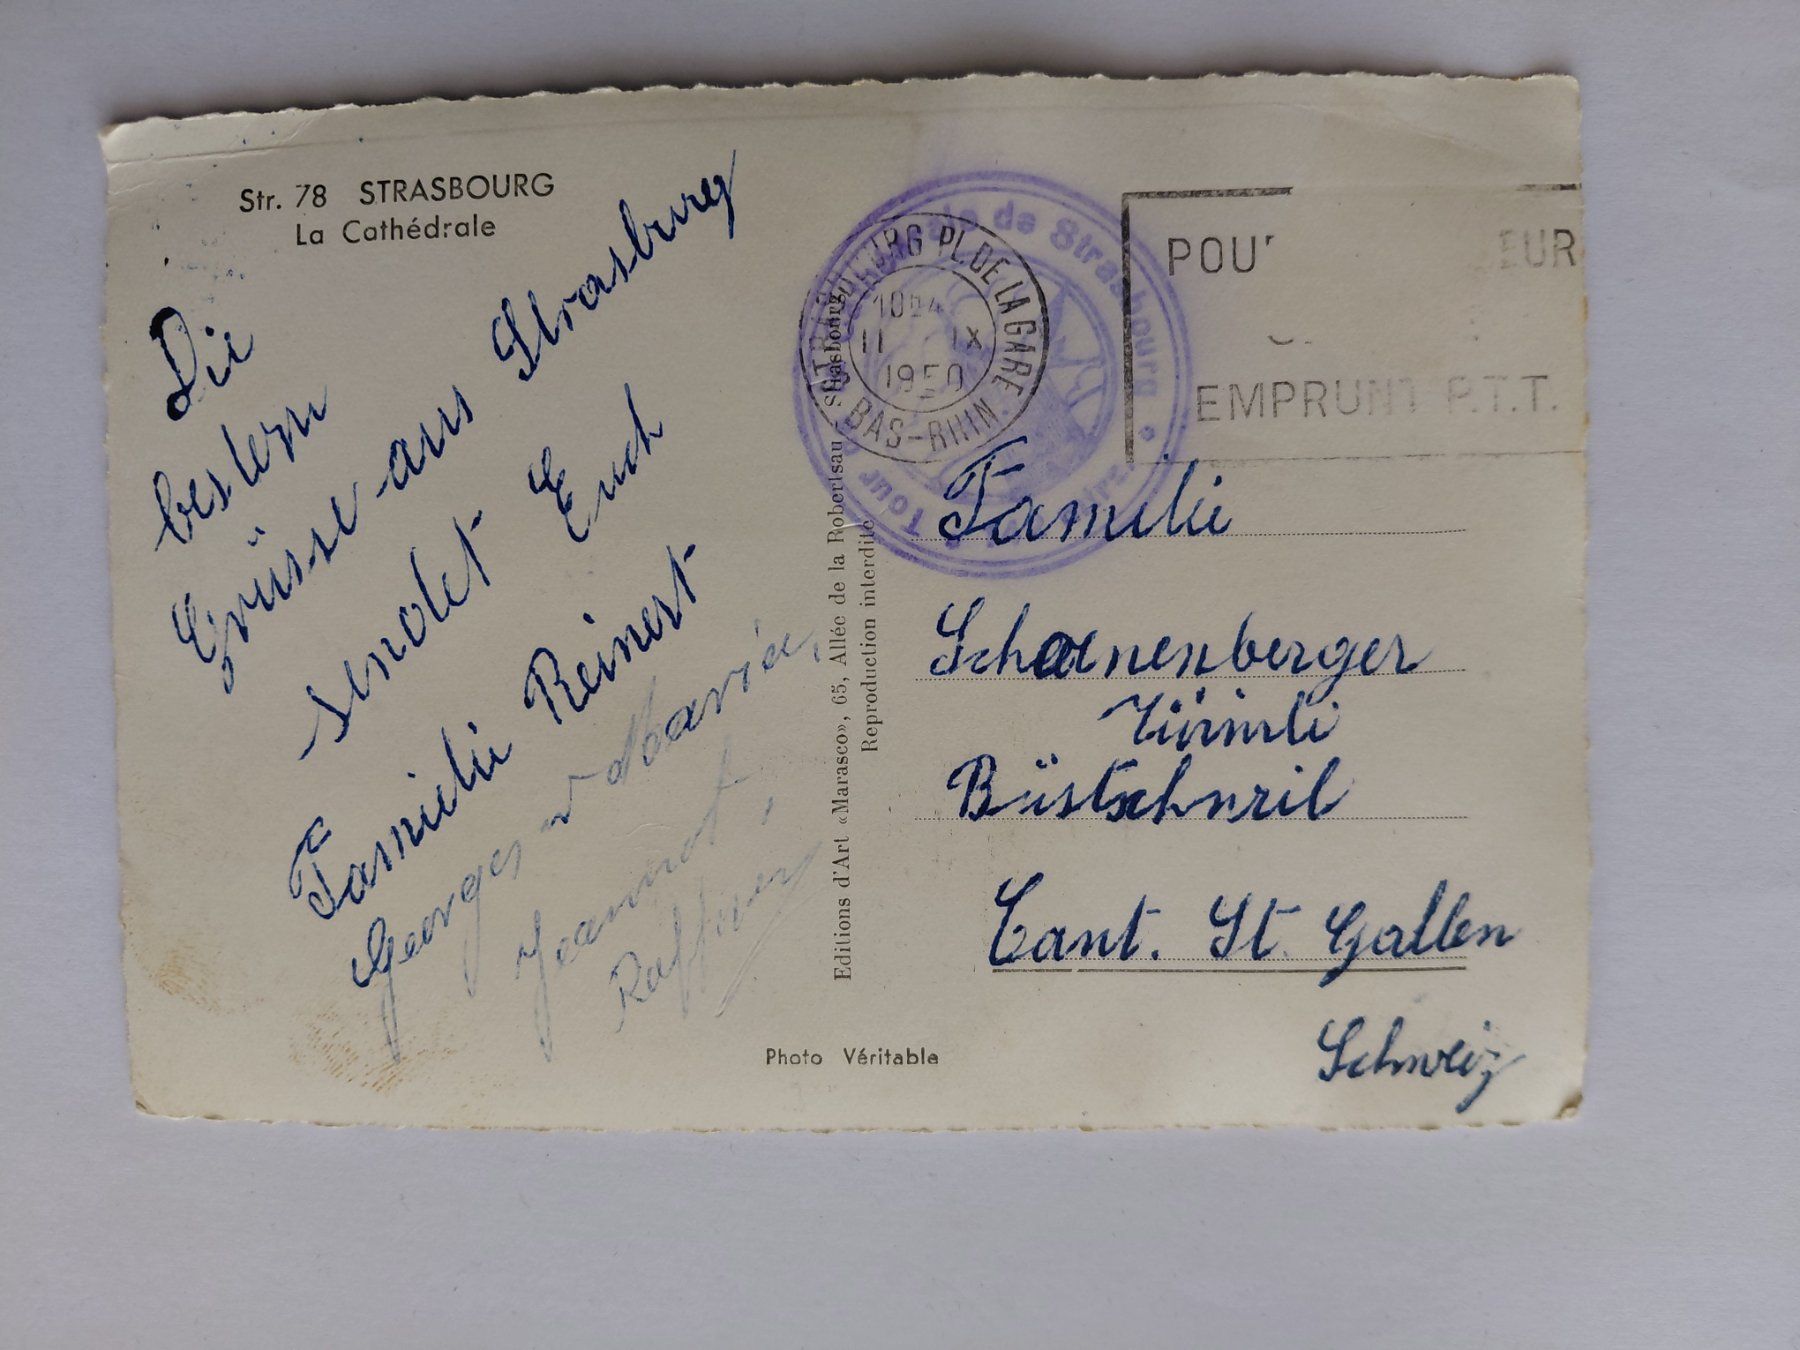 Str. 78 STRASBOURG
La Cathédrale
Die
bestern
Grüsse aus Strasburg
sendet Euch
Familie Reinert
Georges Maria,
Jeannot,
Editions d'Art «Marasco», 65, Allée de la Robertsau - Strasbourg
Reproduction interdite
Photo Véritable
STRASBOURG PL. DE LA GARE
11 IX
1950
BAS-RHIN
de Strasbourg
Tour
EMPRUNT P.T.T.
Familie
Schoenenberger
Bütschwil
Cant. St. Gallen
Schweiz